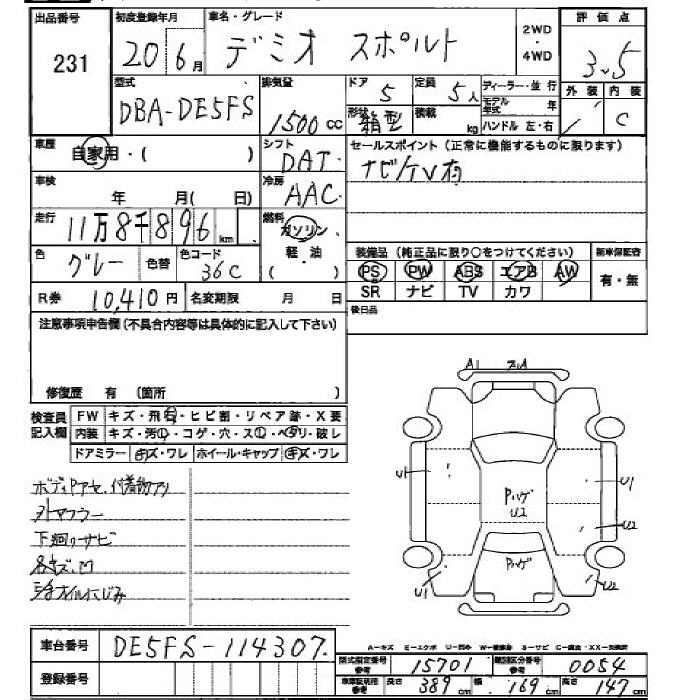 出品番号 初度登録年月 車名・グレード 2WD・4WD 評価点
231 20 6月 デミオ スポルト 3.5
型式 排気量 ドア 5 定員 5人 ディーラー・並行 外装 内装
DBA-DE5FS 1500cc 形状 箱型 積載 kg モデル年式 年 ハンドル 左・右 C
車歴 自家用・( ) シフト DAT セールスポイント(正常に機能するものに限ります)
車検 年 月( 日) 冷房 AAC ナビ/TV有
走行 11万8千896km 燃料 ガソリン
色 グレー 色替 色コード 36C 軽・油 ( ) 装備品(純正品に限り○をつけてください) 新車保証書
PS PW ABS エアB AW 有・無
R券 10,410円 名変期限 月 日 SR ナビ TV カワ
注意事項申告欄(不具合内容等は具体的に記入して下さい) 後日品
修復歴 有 (箇所 )
検査員記入欄 FW キズ・飛石・ヒビ割・リペア跡・X要
内装 キズ・汚れ・コゲ・穴・スレ・ヘタリ・破レ
ドアミラー キズ・ワレ ホイール・キャップ キズ・ワレ
A1
U1 U1
Pハゲ
U2 U2
Pハゲ
U1 U2
下廻りサビ
A-キズ E-エクボ U-凹み W-補修跡 S-サビ C-腐食・XX-交換済
車台番号 DE5FS-114307.
登録番号
型式指定番号 参考 15701 類別区分番号 参考 0054
車庫証明用 参考 長さ 389cm 幅 169cm 高さ 147cm